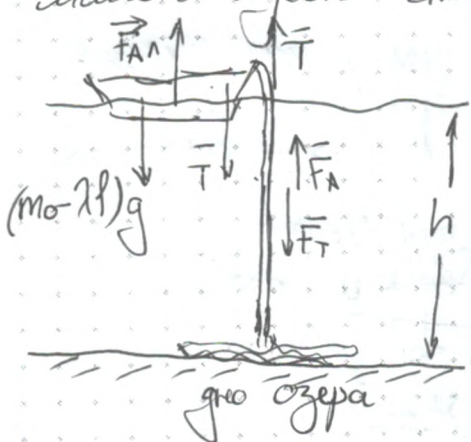 F_Aл
T
T
F_A
(m₀-λl)g
F_T
h
дно озера